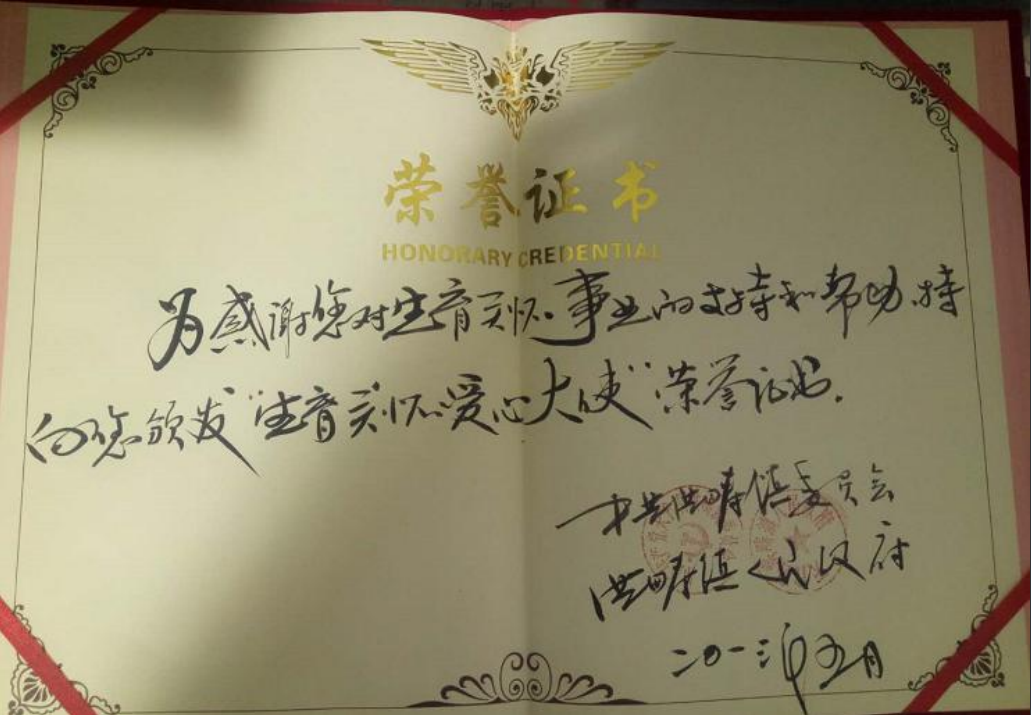 荣誉证书
HONORARY CREDENTIAL
为感谢您对生育关怀事业的支持和帮助,特
向您颁发“生育关怀爱心大使”荣誉证书.
中共洪畴镇委员会
洪畴镇人民政府
二〇一三年五月